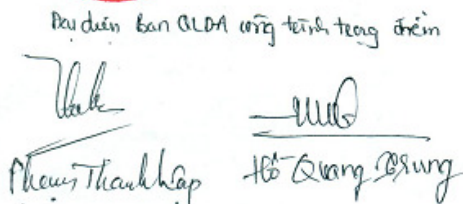 Đại diện Ban QLDA công trình trọng điểm
Phạm Thanh Lập Hồ Quang Trung